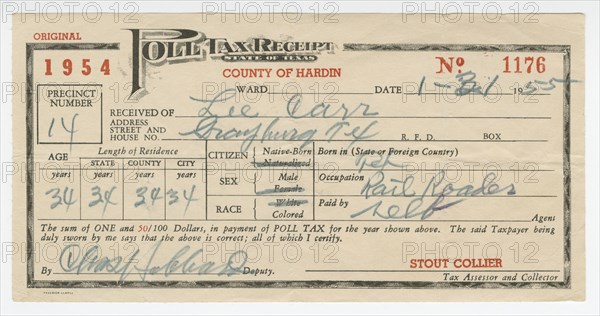 ORIGINAL
POLL TAX RECEIPT
STATE OF TEXAS
1954
COUNTY OF HARDIN
No 1176
WARD DATE 1-31 1955
PRECINCT NUMBER
14
RECEIVED OF Lee Carr
ADDRESS STREET AND HOUSE NO. Grayburg Tex R. F. D. BOX
AGE Length of Residence CITIZEN Native-Born Naturalized Born in (State or Foreign Country)
years STATE COUNTY CITY Tex
years years years SEX Male Female Occupation Rail Roader
34 34 34 34 RACE White Colored Paid by self Agent
The sum of ONE and 50/100 Dollars, in payment of POLL TAX for the year shown above. The said Taxpayer being
duly sworn by me says that the above is correct; all of which I certify.
By Deputy. STOUT COLLIER
Tax Assessor and Collector